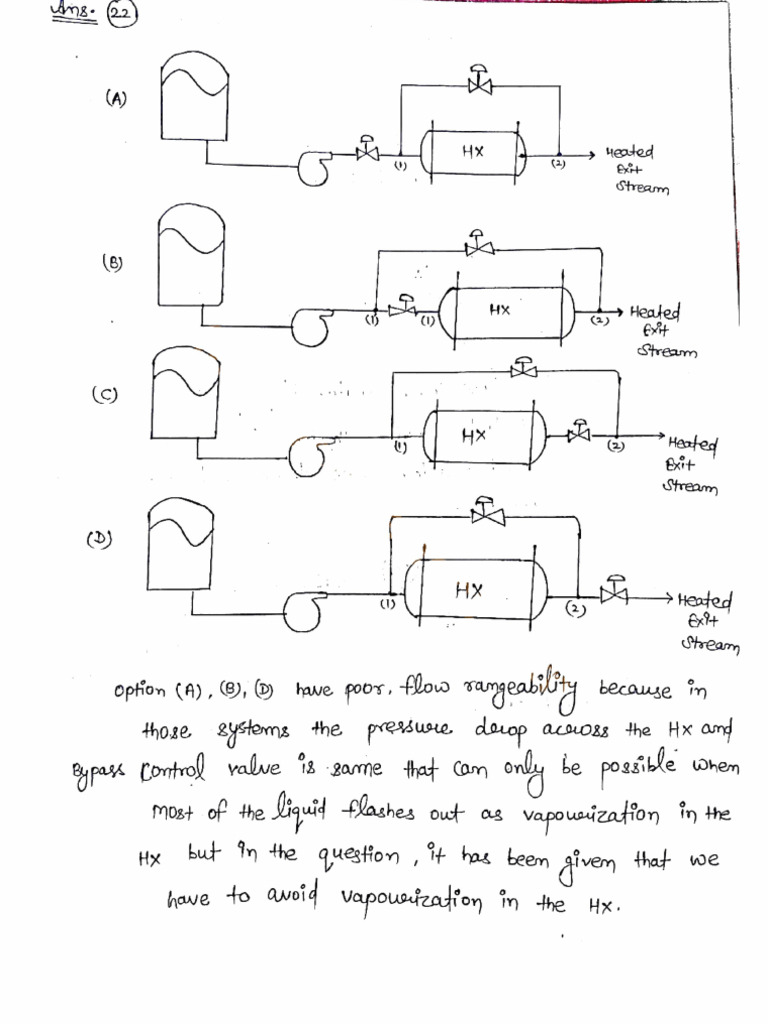 Ans. 22
(A)
HX
(1)
(2)
Heated
Exit
Stream
(B)
HX
(1)
(1)
(2)
Heated
Exit
Stream
(C)
HX
(1)
(2)
Heated
Exit
Stream
(D)
HX
(1)
(2)
Heated
Exit
Stream
option (A), (B), (D) have poor. flow rangeability because in
those systems the pressure drop across the HX and
Bypass control valve is same that can only be possible when
most of the liquid flashes out as vapourization in the
HX but in the question, it has been given that we
have to avoid vapourization in the HX.